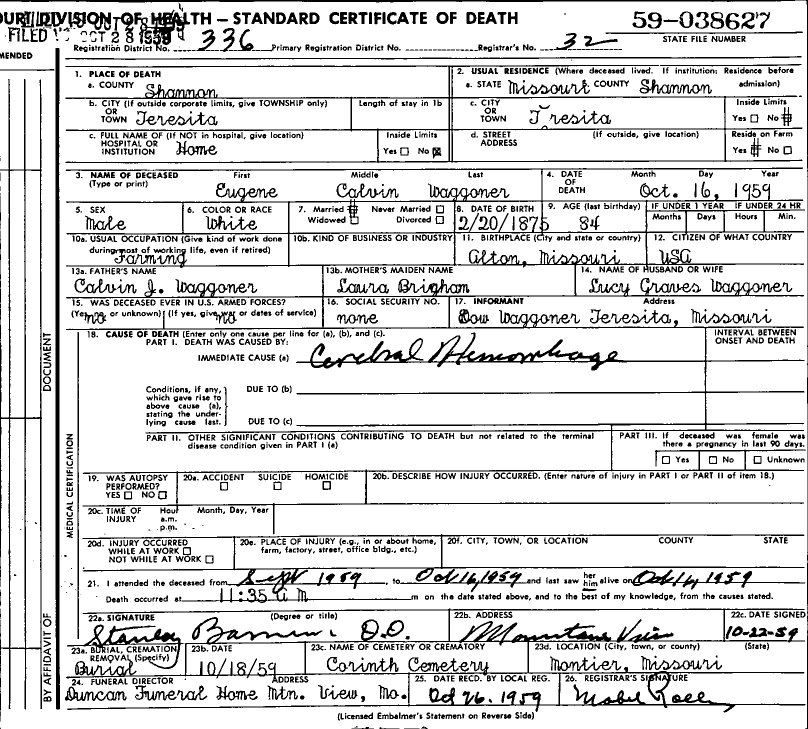 DIVISION OF HEALTH — STANDARD CERTIFICATE OF DEATH
59-038627
FILED OCT 28 1959
Registration District No. 336 Primary Registration District No. Registrar's No. 32
STATE FILE NUMBER
1. PLACE OF DEATH
a. COUNTY Shannon
2. USUAL RESIDENCE (Where deceased lived. If institution: Residence before admission)
a. STATE Missouri COUNTY Shannon
b. CITY (If outside corporate limits, give TOWNSHIP only) OR TOWN Teresita
Length of stay in 1b
c. CITY OR TOWN T resita
Inside Limits
Yes No #
c. FULL NAME OF (If NOT in hospital, give location) HOSPITAL OR INSTITUTION Home
Inside Limits
Yes No X
d. STREET ADDRESS (If outside, give location)
Reside on Farm
Yes # No
3. NAME OF DECEASED (Type or print)
First Middle Last
Eugene Calvin Waggoner
4. DATE OF DEATH
Month Day Year
Oct. 16, 1959
5. SEX
Male
6. COLOR OR RACE
White
7. Married # Never Married
Widowed Divorced
8. DATE OF BIRTH
2/20/1875
9. AGE (last birthday)
84
IF UNDER 1 YEAR
Months Days
IF UNDER 24 HR
Hours Min.
10a. USUAL OCCUPATION (Give kind of work done during most of working life, even if retired)
Farming
10b. KIND OF BUSINESS OR INDUSTRY
11. BIRTHPLACE (City and state or country)
Alton, Missouri
12. CITIZEN OF WHAT COUNTRY
USA
13a. FATHER'S NAME
Calvin J. Waggoner
13b. MOTHER'S MAIDEN NAME
Laura Brigham
14. NAME OF HUSBAND OR WIFE
Lucy Graves Waggoner
15. WAS DECEASED EVER IN U.S. ARMED FORCES?
(Yes, no or unknown) (If yes, give war or dates of service)
no no
16. SOCIAL SECURITY NO.
none
17. INFORMANT Address
Dow Waggoner Teresita, Missouri
18. CAUSE OF DEATH (Enter only one cause per line for (a), (b), and (c).
PART I. DEATH WAS CAUSED BY:
IMMEDIATE CAUSE (a) Cerebral Hemorrhage
INTERVAL BETWEEN ONSET AND DEATH
Conditions, if any, which gave rise to above cause (a), stating the underlying cause last.
DUE TO (b)
DUE TO (c)
PART II. OTHER SIGNIFICANT CONDITIONS CONTRIBUTING TO DEATH but not related to the terminal disease condition given in PART I (a)
PART III. If deceased was female was there a pregnancy in last 90 days.
Yes No Unknown
19. WAS AUTOPSY PERFORMED?
YES NO
20a. ACCIDENT SUICIDE HOMICIDE
20b. DESCRIBE HOW INJURY OCCURRED. (Enter nature of injury in PART I or PART II of item 18.)
20c. TIME OF INJURY Hour a.m. p.m. Month, Day, Year
20d. INJURY OCCURRED
WHILE AT WORK
NOT WHILE AT WORK
20e. PLACE OF INJURY (e.g., in or about home, farm, factory, street, office bldg., etc.)
20f. CITY, TOWN, OR LOCATION COUNTY STATE
21. I attended the deceased from Sept 1959, to Oct 16, 1959 and last saw her him alive on Oct 16, 1959
Death occurred at 11:35 a M m on the date stated above, and to the best of my knowledge, from the causes stated.
22a. SIGNATURE (Degree or title)
Stanley D.O.
22b. ADDRESS
Mountain View
22c. DATE SIGNED
10-22-59
23a. BURIAL, CREMATION REMOVAL (Specify)
Burial
23b. DATE
10/18/59
23c. NAME OF CEMETERY OR CREMATORY
Corinth Cemetery
23d. LOCATION (City, town, or county) (State)
Montier, Missouri
24. FUNERAL DIRECTOR ADDRESS
Duncan Funeral Home Mtn. View, Mo.
25. DATE RECD. BY LOCAL REG.
Oct 26. 1959
26. REGISTRAR'S SIGNATURE
Mabel
(Licensed Embalmer's Statement on Reverse Side)
MEDICAL CERTIFICATION
DOCUMENT
BY AFFIDAVIT OF